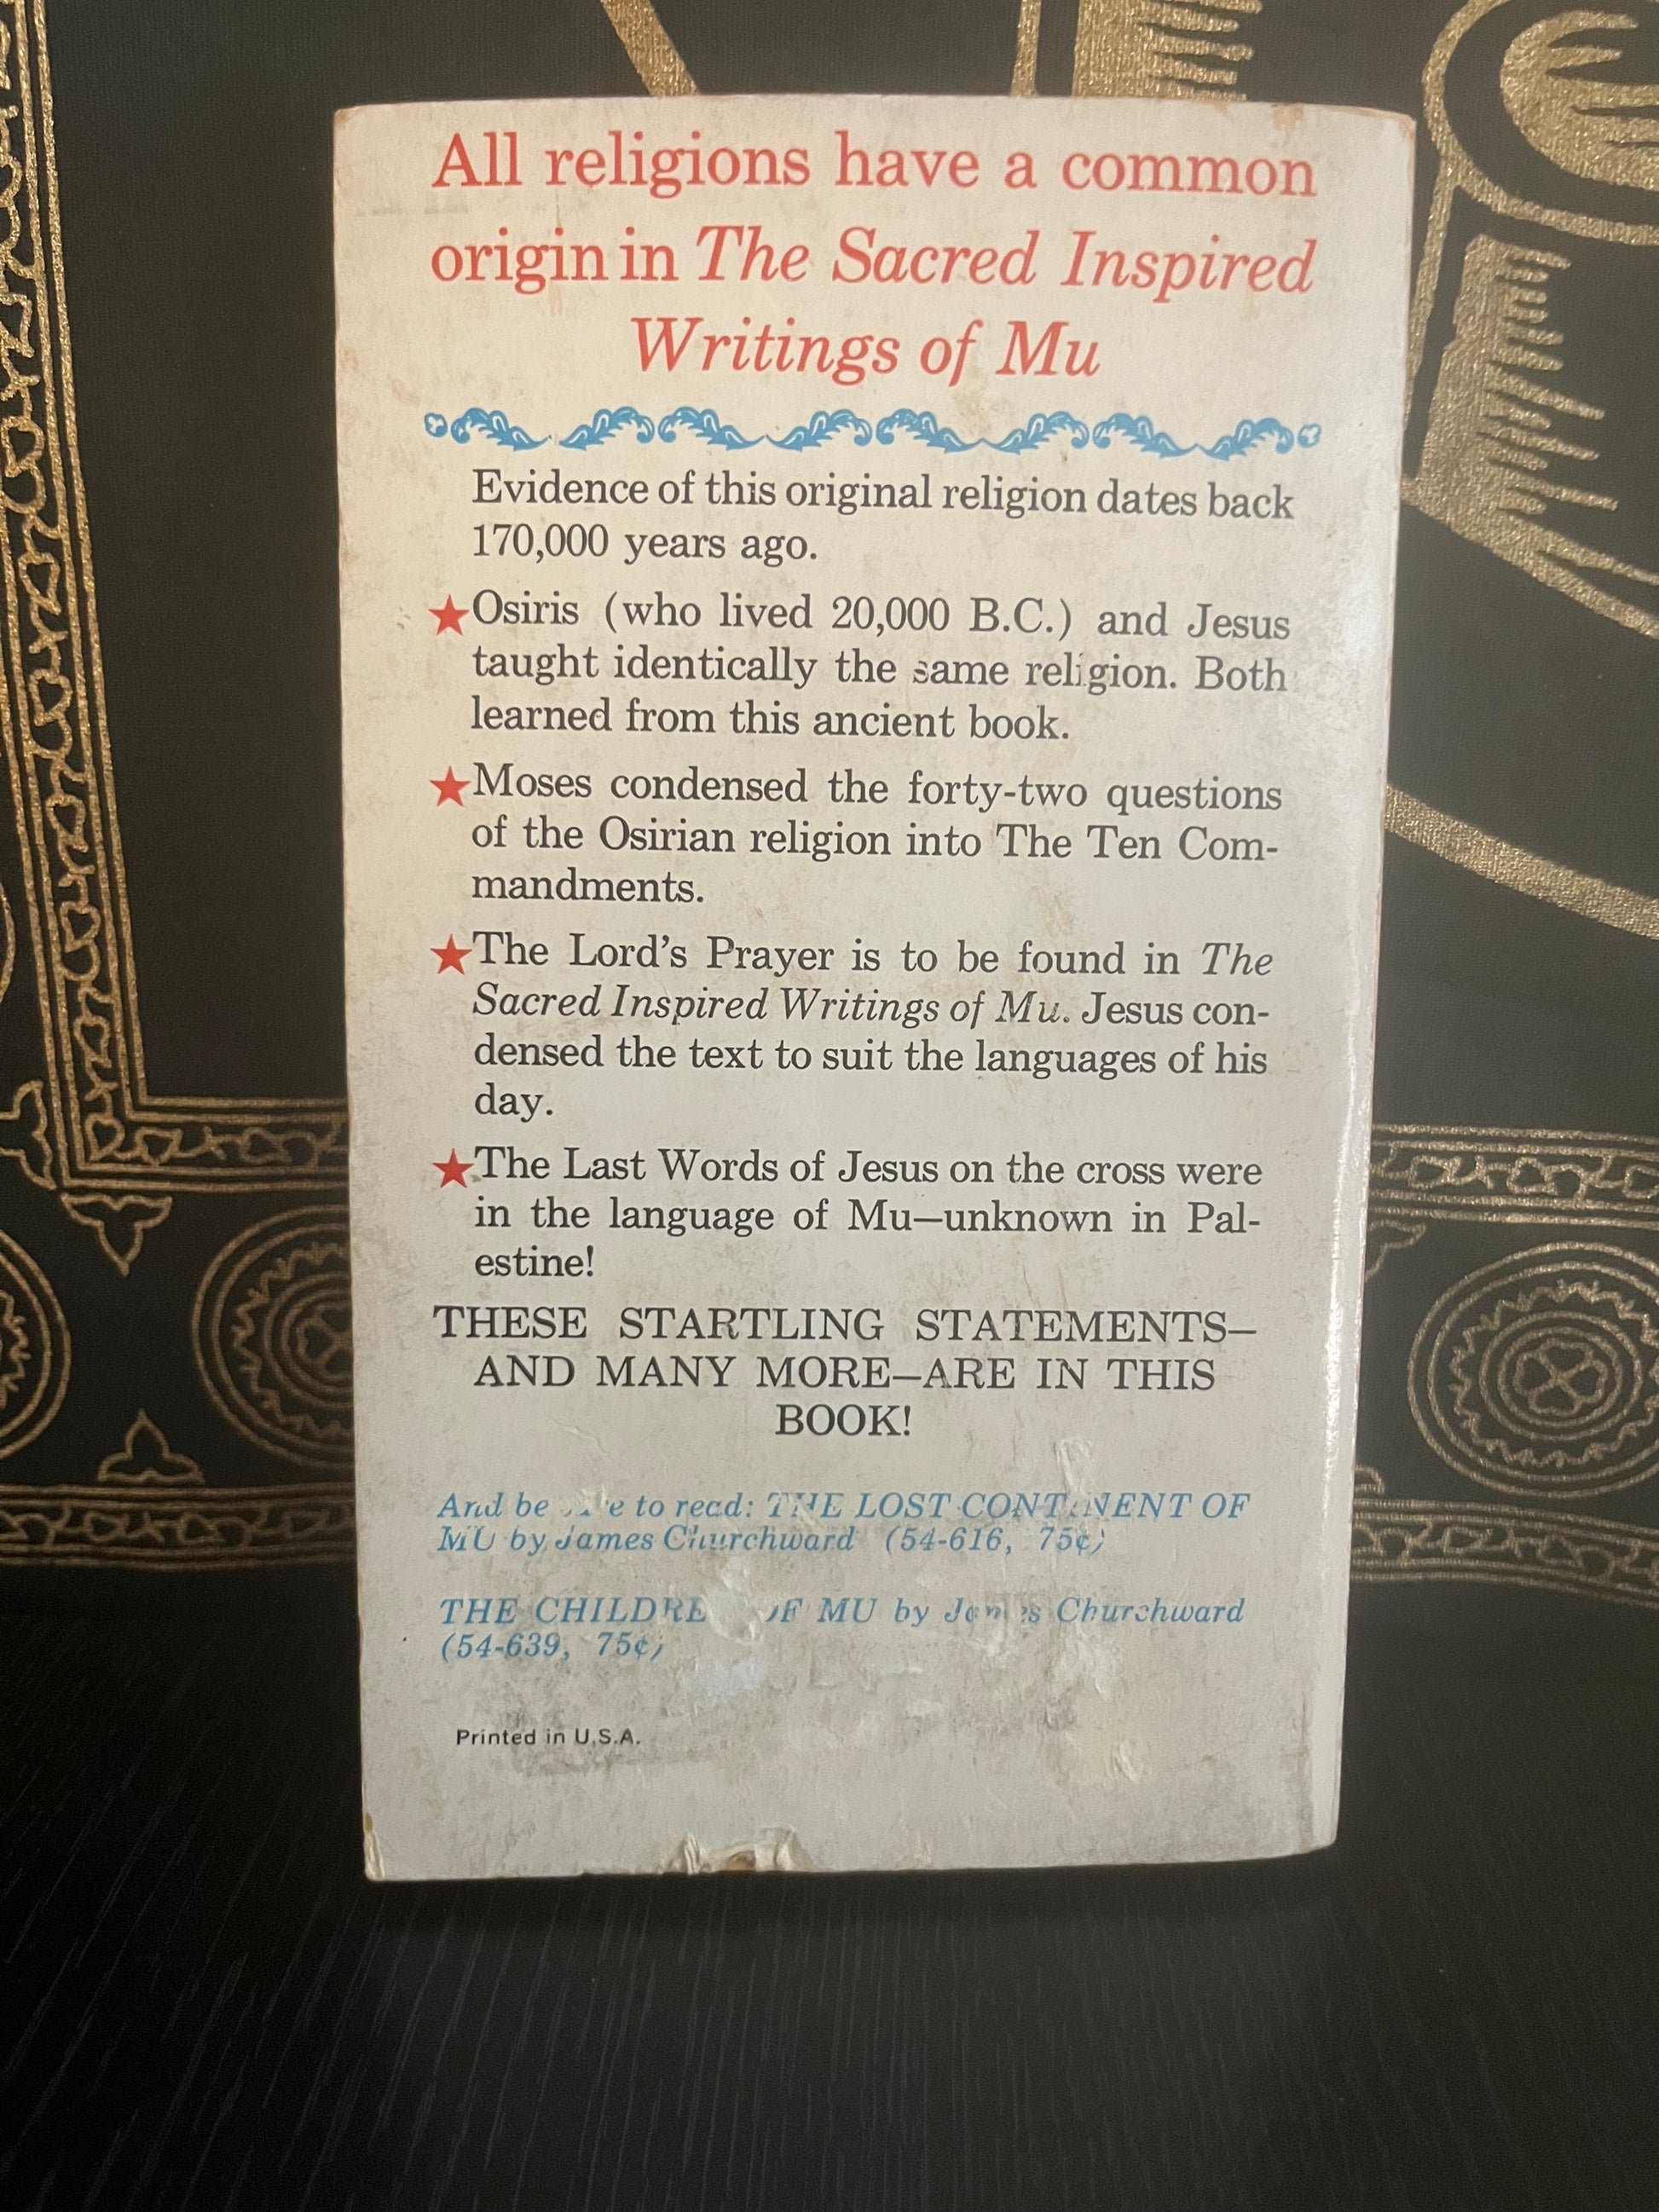 All religions have a common
origin in The Sacred Inspired
Writings of Mu
Evidence of this original religion dates back
170,000 years ago.
Osiris (who lived 20,000 B.C.) and Jesus
taught identically the same religion. Both
learned from this ancient book.
Moses condensed the forty-two questions
of the Osirian religion into The Ten Com-
mandments.
The Lord's Prayer is to be found in The
Sacred Inspired Writings of Mu. Jesus con-
densed the text to suit the languages of his
day.
The Last Words of Jesus on the cross were
in the language of Mu—unknown in Pal-
estine!
THESE STARTLING STATEMENTS—
AND MANY MORE—ARE IN THIS
BOOK!
And be to read: THE LOST CONTINENT OF
MU by James Churchward (54-616, 75¢)
THE CHILDREN OF MU by James Churchward
(54-639, 75¢)
Printed in U.S.A.